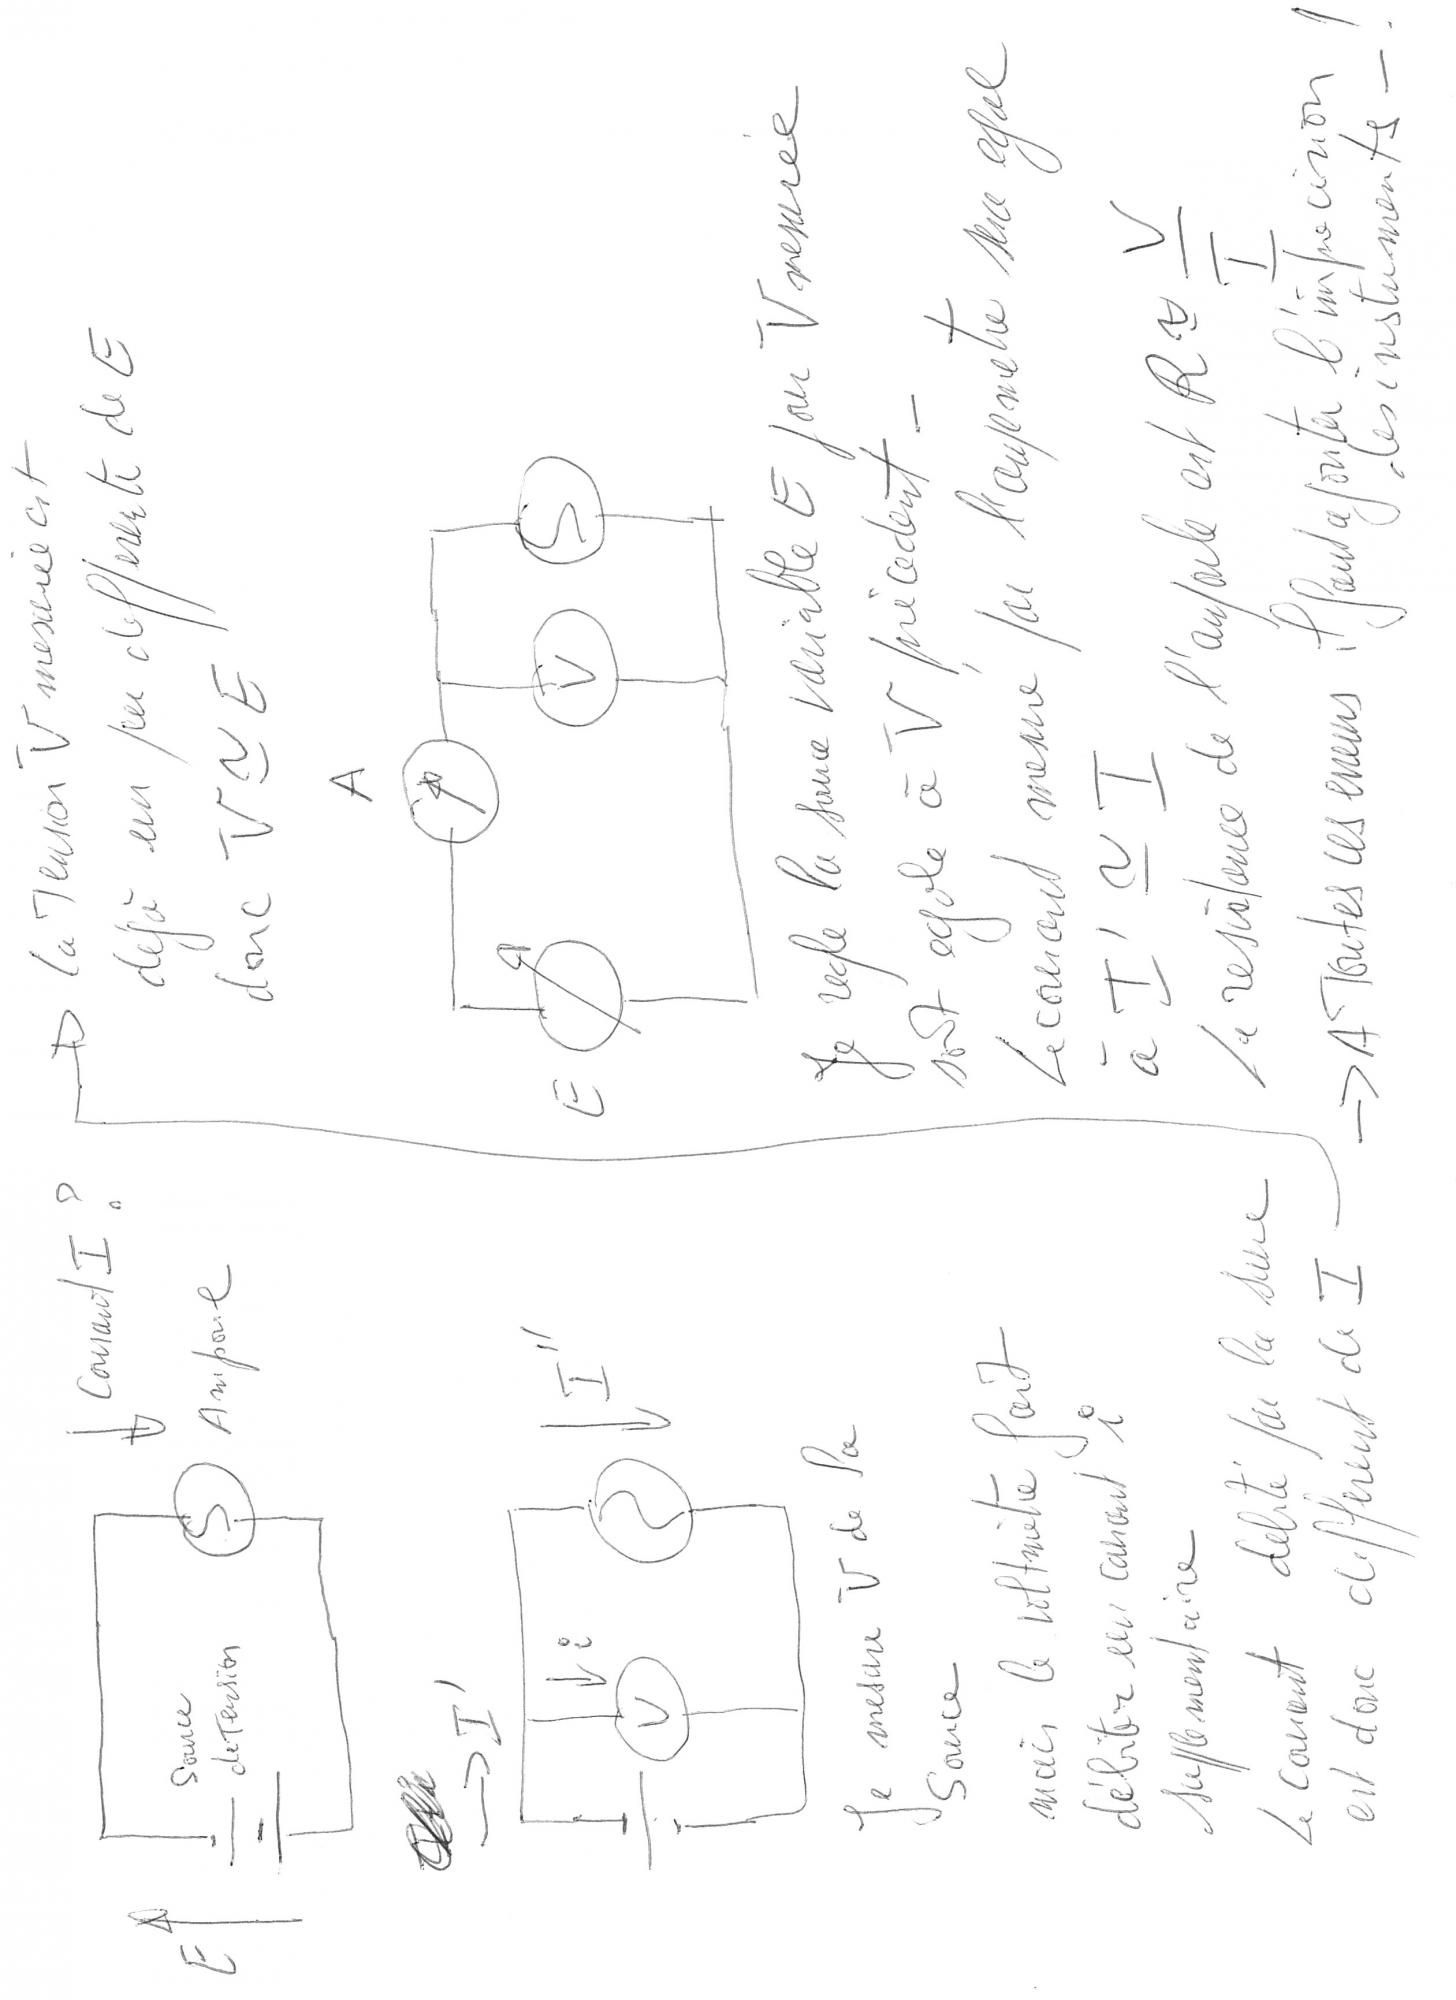 Courant I ?
Source
de Tension
E
Ampoule
I'
i
V
I''
Je mesure V de la
Source
mais le voltmètre fait
débiter un courant i
supplémentaire
Le courant débité par la source
est donc différent de I
→ La Tension V mesurée est
déjà un peu différente de E
donc V ≃ E
A
E
V
Je regle la source variable E pour V mesurée
soit egale à V précédent -
Le courant mesuré par l'ampmetre sera egal
à I' ≃ I
La resistance de l'ampoule est R ≃ V/I
→ A Toutes ces erreurs il faut ajouter l'imprecision
des instruments - !